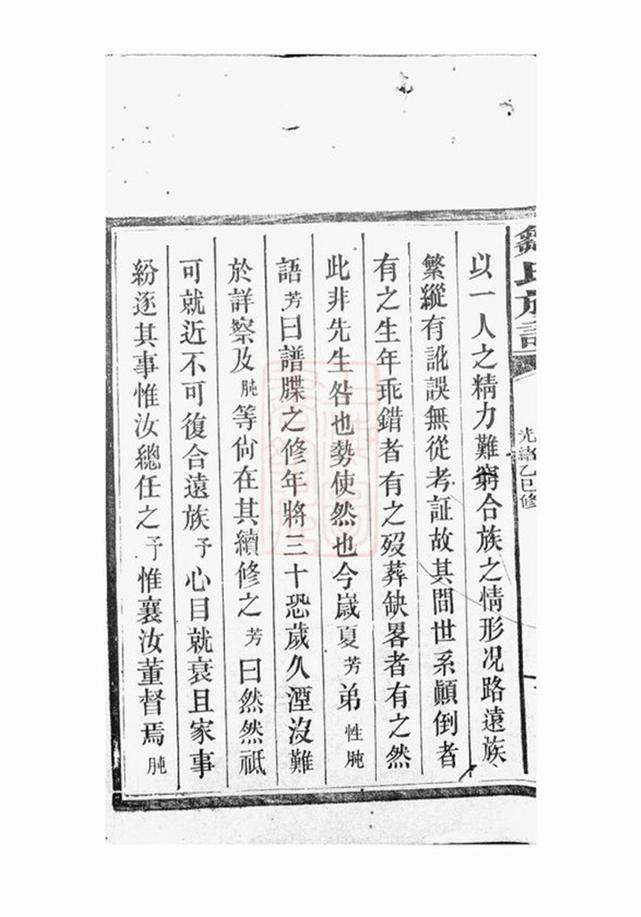 氏族譜
光緒乙巳修
以一人之精力難窮合族之情形况路遠族
繁縱有訛誤無從考証故其間世系顚倒者
有之生年乖錯者有之殁葬缺畧者有之然
此非先生咎也勢使然也今歲夏芳弟性肫
語芳曰譜牒之修年將三十恐歲久湮沒難
於詳察及肫等尙在其續修之芳曰然然祇
可就近不可復合遠族予心目就衰且家事
紛逐其事惟汝總任之予惟襄汝董督焉肫